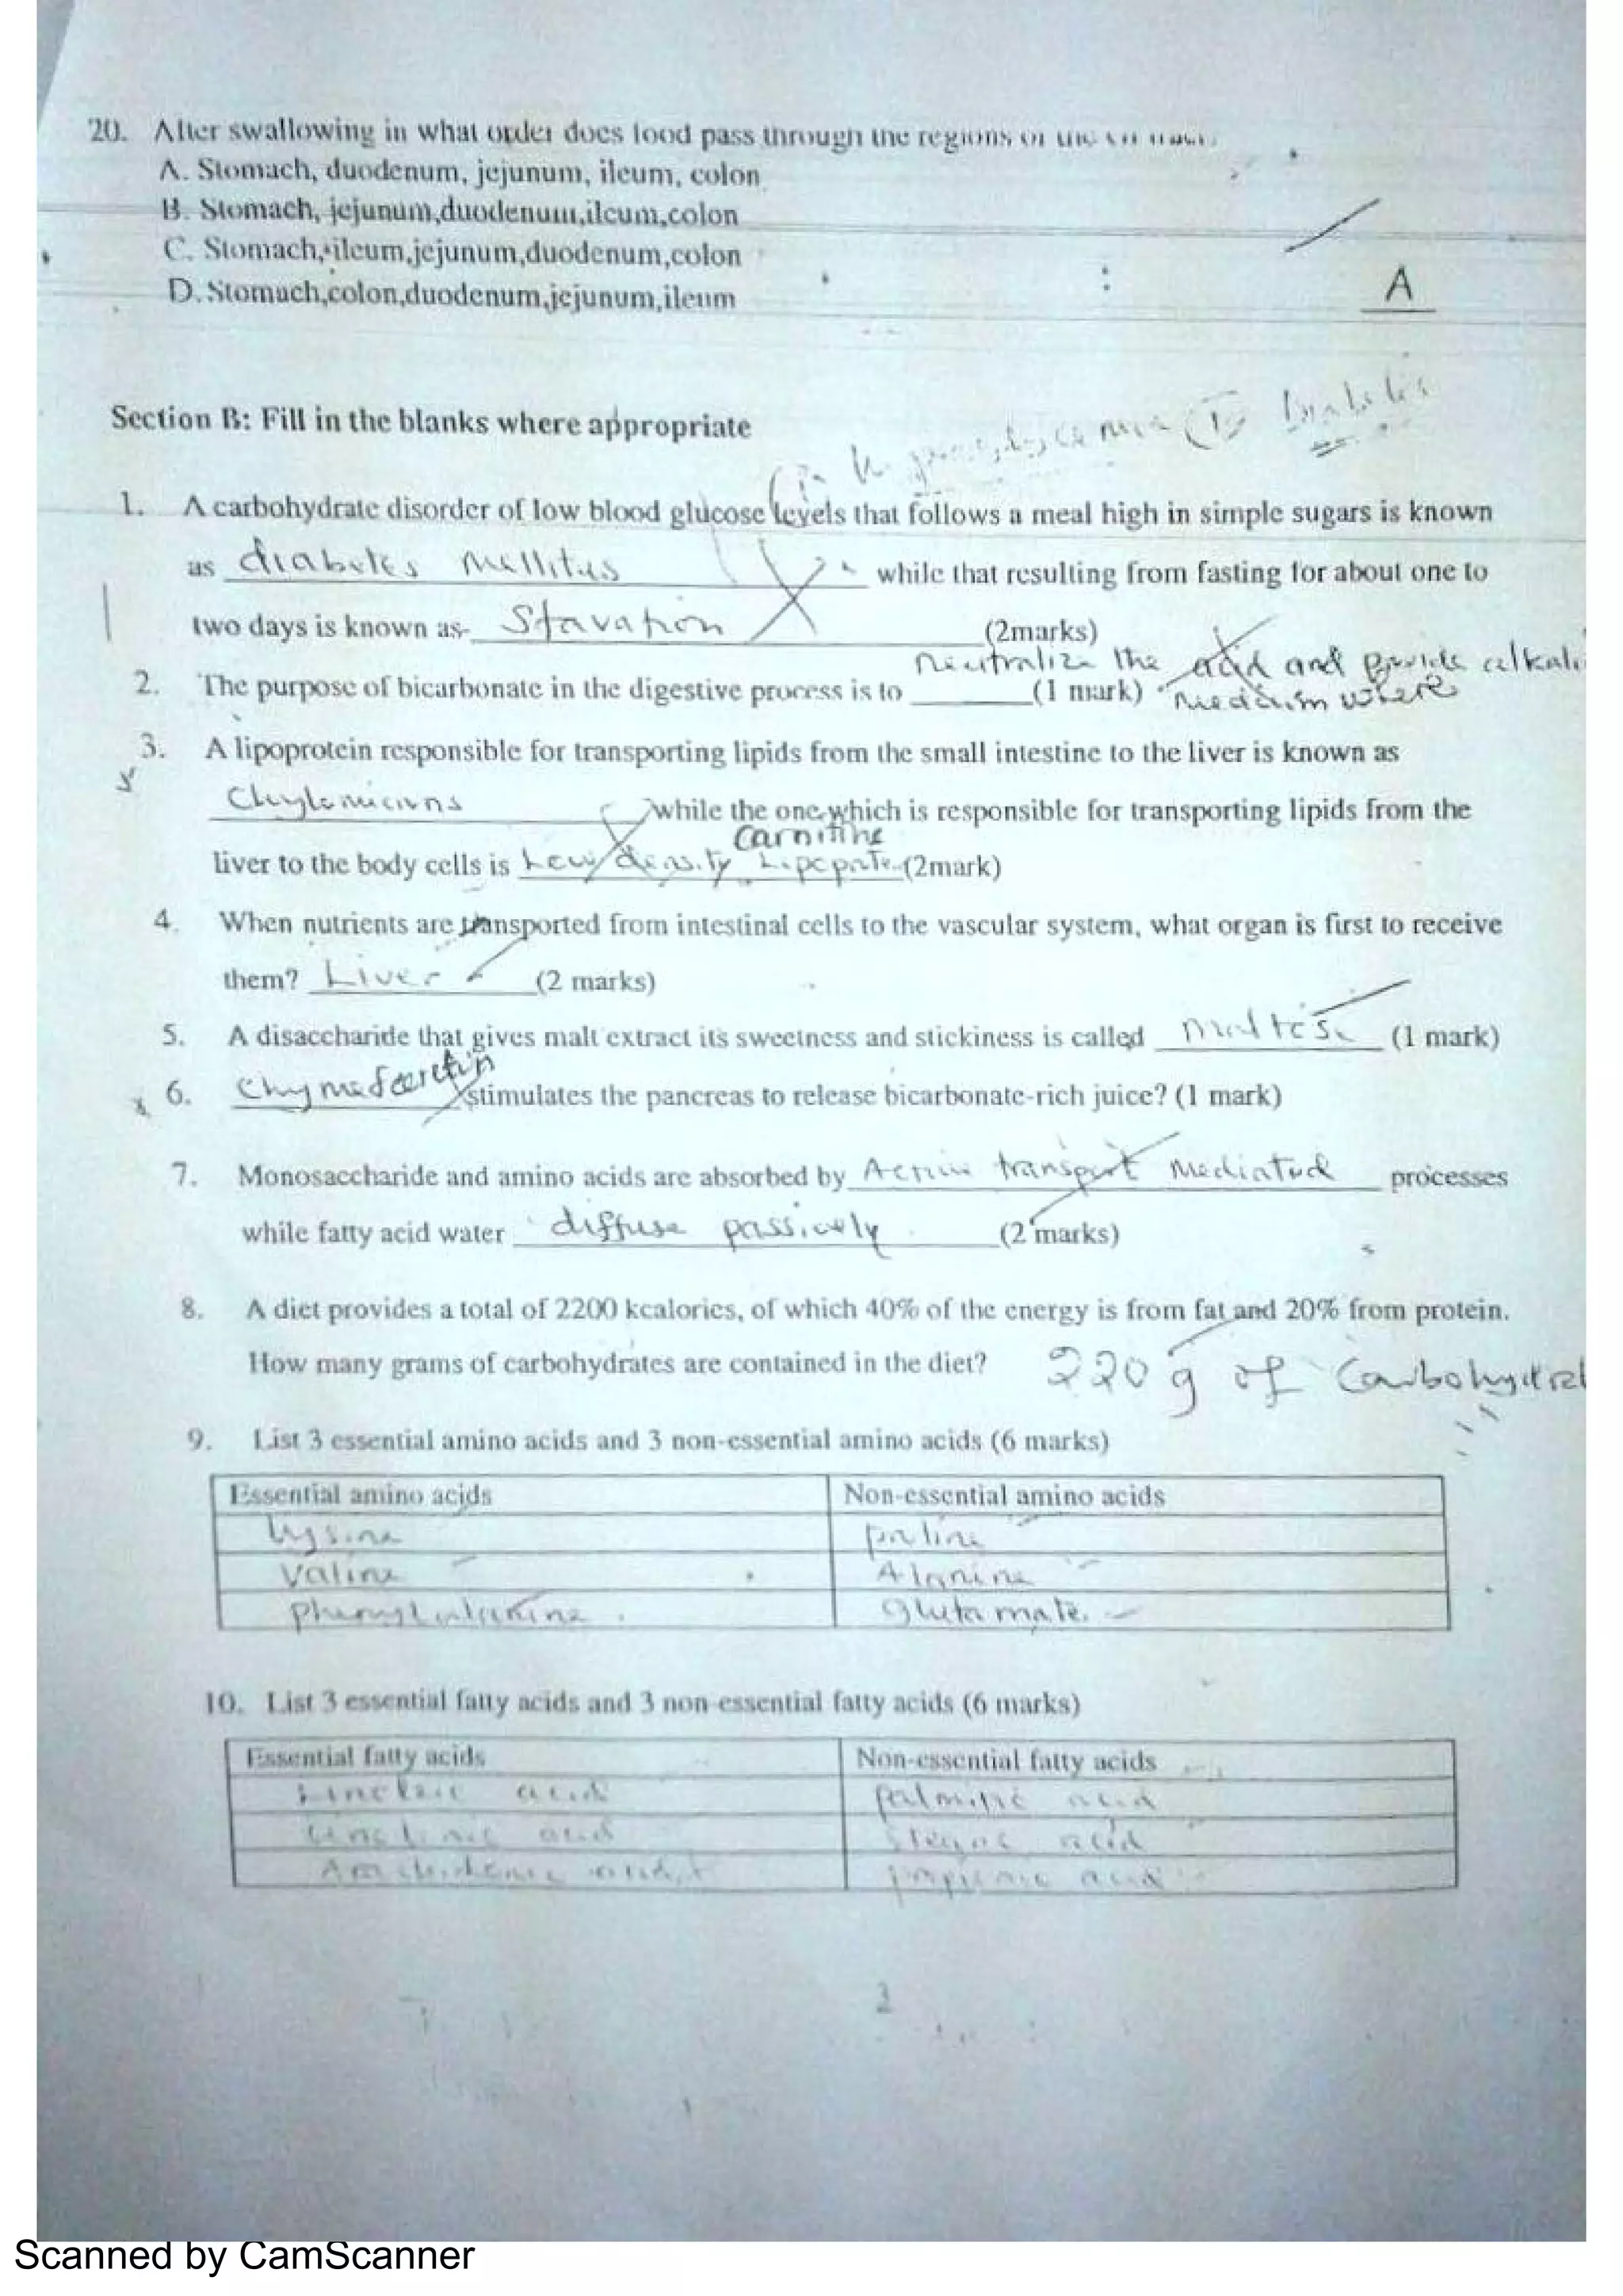 20. After swallowing in what order does food pass through the regions of the
A. Stomach, duodenum, jejunum, ileum, colon
B. Stomach, jejunum,duodenum,ileum,colon
C. Stomach,ileum,jejunum,duodenum,colon
D. Stomach,colon,duodenum,jejunum,ileum
A
Section B: Fill in the blanks where appropriate
Diabetes
1. A carbohydrate disorder of low blood glucose levels that follows a meal high in simple sugars is known
as diabetes mellitus while that resulting from fasting for about one to
two days is known as- Stavation (2marks)
neutralize the acid and provide alkali
2. The purpose of bicarbonate in the digestive process is to ______(1 mark) medium where
3. A lipoprotein responsible for transporting lipids from the small intestine to the liver is known as
Chylomicrons while the one which is responsible for transporting lipids from the
Carnitine
liver to the body cells is Low density (2mark)
4. When nutrients are transported from intestinal cells to the vascular system, what organ is first to receive
them? Liver (2 marks)
5. A disaccharide that gives malt extract its sweetness and stickiness is called maltose (1 mark)
6. stimulates the pancreas to release bicarbonate-rich juice? (1 mark)
7. Monosaccharide and amino acids are absorbed by Active transport mediated processes
while fatty acid water diffuse passively (2 marks)
8. A diet provides a total of 2200 kcalories, of which 40% of the energy is from fat and 20% from protein.
How many grams of carbohydrates are contained in the diet? 220 g of Carbohydrat
9. List 3 essential amino acids and 3 non-essential amino acids (6 marks)
Essential amino acids Non-essential amino acids
Lysine proline
Valine Alanine
phenylalanine glutamate.
10. List 3 essential fatty acids and 3 non-essential fatty acids (6 marks)
Essential fatty acids Non-essential fatty acids
Linoleic acid palmitic acid
acid acid
acid
3
Scanned by CamScanner